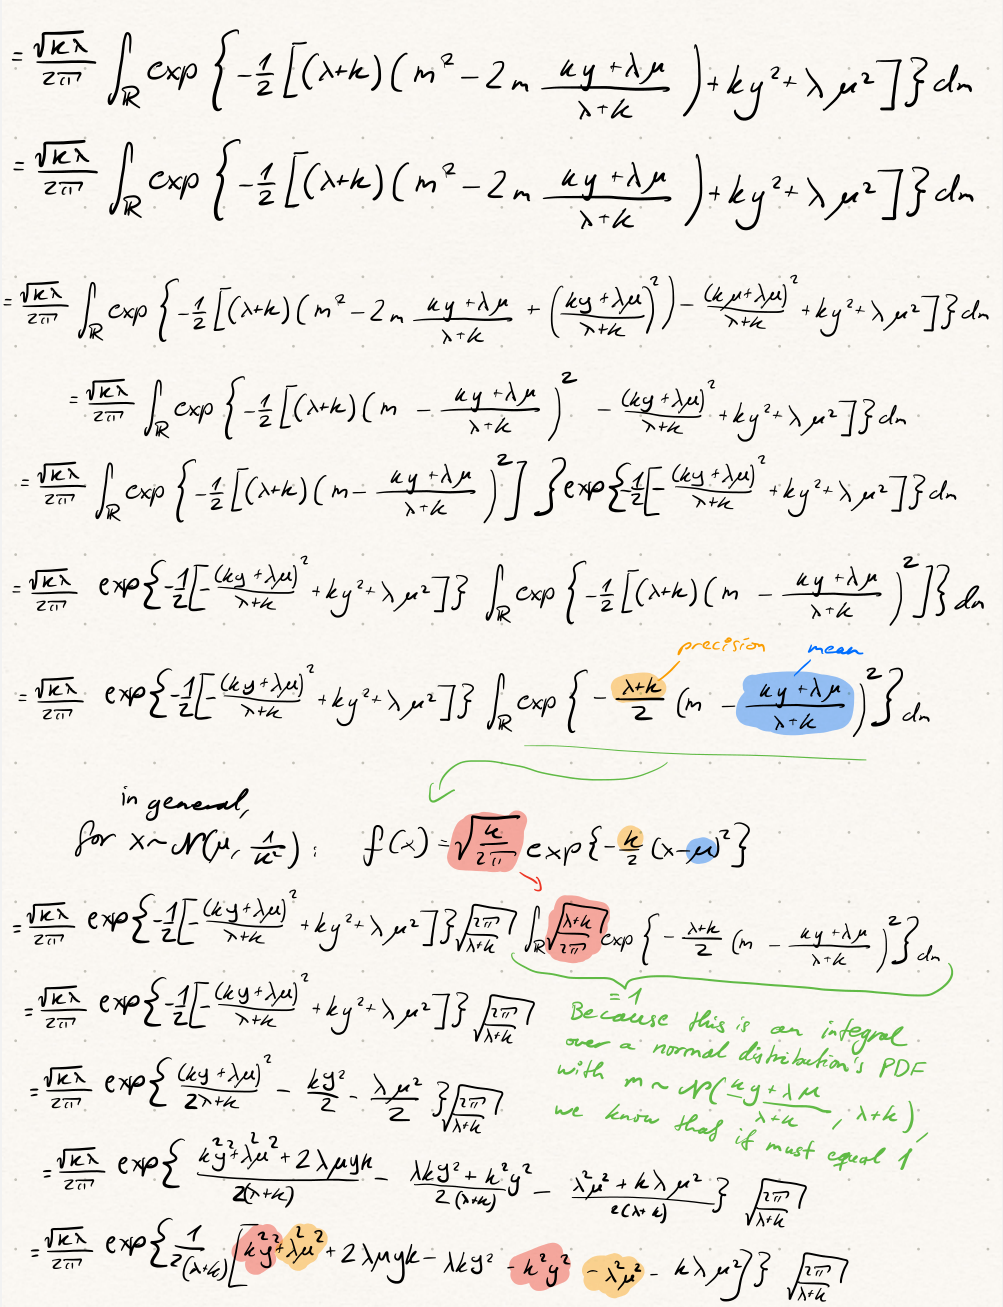 = √(kλ)/2π ∫_ℝ exp { -1/2 [(λ+k)(m² - 2m (ky+λμ)/(λ+k)) + ky² + λμ²]} dm
= √(kλ)/2π ∫_ℝ exp { -1/2 [(λ+k)(m² - 2m (ky+λμ)/(λ+k)) + ky² + λμ²]} dm
= √(kλ)/2π ∫_ℝ exp { -1/2 [(λ+k)(m² - 2m (ky+λμ)/(λ+k) + ((ky+λμ)/(λ+k))²) - (kμ+λμ)²/(λ+k) + ky² + λμ²]} dm
= √(kλ)/2π ∫_ℝ exp { -1/2 [(λ+k)(m - (ky+λμ)/(λ+k))² - (ky+λμ)²/(λ+k) + ky² + λμ²]} dm
= √(kλ)/2π ∫_ℝ exp { -1/2 [(λ+k)(m - (ky+λμ)/(λ+k))²] } exp{-1/2[-(ky+λμ)²/(λ+k) + ky² + λμ²]} dm
= √(kλ)/2π exp{-1/2[-(ky+λμ)²/(λ+k) + ky² + λμ²]} ∫_ℝ exp { -1/2 [(λ+k)(m - (ky+λμ)/(λ+k))²]} dm
precision mean
= √(kλ)/2π exp{-1/2[-(ky+λμ)²/(λ+k) + ky² + λμ²]} ∫_ℝ exp { - (λ+k)/2 (m - (ky+λμ)/(λ+k))²} dm
in general,
for x~N(μ, 1/k²): f(x) = √(k/2π) exp{-k/2 (x-μ)²}
= √(kλ)/2π exp{-1/2[-(ky+λμ)²/(λ+k) + ky² + λμ²]} √(2π/(λ+k)) ∫_ℝ √((λ+k)/2π) exp { - (λ+k)/2 (m - (ky+λμ)/(λ+k))²} dm
= 1
= √(kλ)/2π exp{-1/2[-(ky+λμ)²/(λ+k) + ky² + λμ²]} √(2π/(λ+k))
Because this is an integral
over a normal distribution's PDF
with m ~ N((ky+λμ)/(λ+k), λ+k),
we know that it must equal 1
= √(kλ)/2π exp{ (ky+λμ)²/(2λ+k) - ky²/2 - λμ²/2 } √(2π/(λ+k))
= √(kλ)/2π exp{ (k²y²+λ²μ²+2λμyk)/(2(λ+k)) - (λky²+k²y²)/(2(λ+k)) - (λ²μ²+kλμ²)/(2(λ+k)) } √(2π/(λ+k))
= √(kλ)/2π exp{ 1/(2(λ+k)) [k²y²+λ²μ²+2λμyk-λky²-k²y²-λ²μ²-kλμ²]} √(2π/(λ+k))